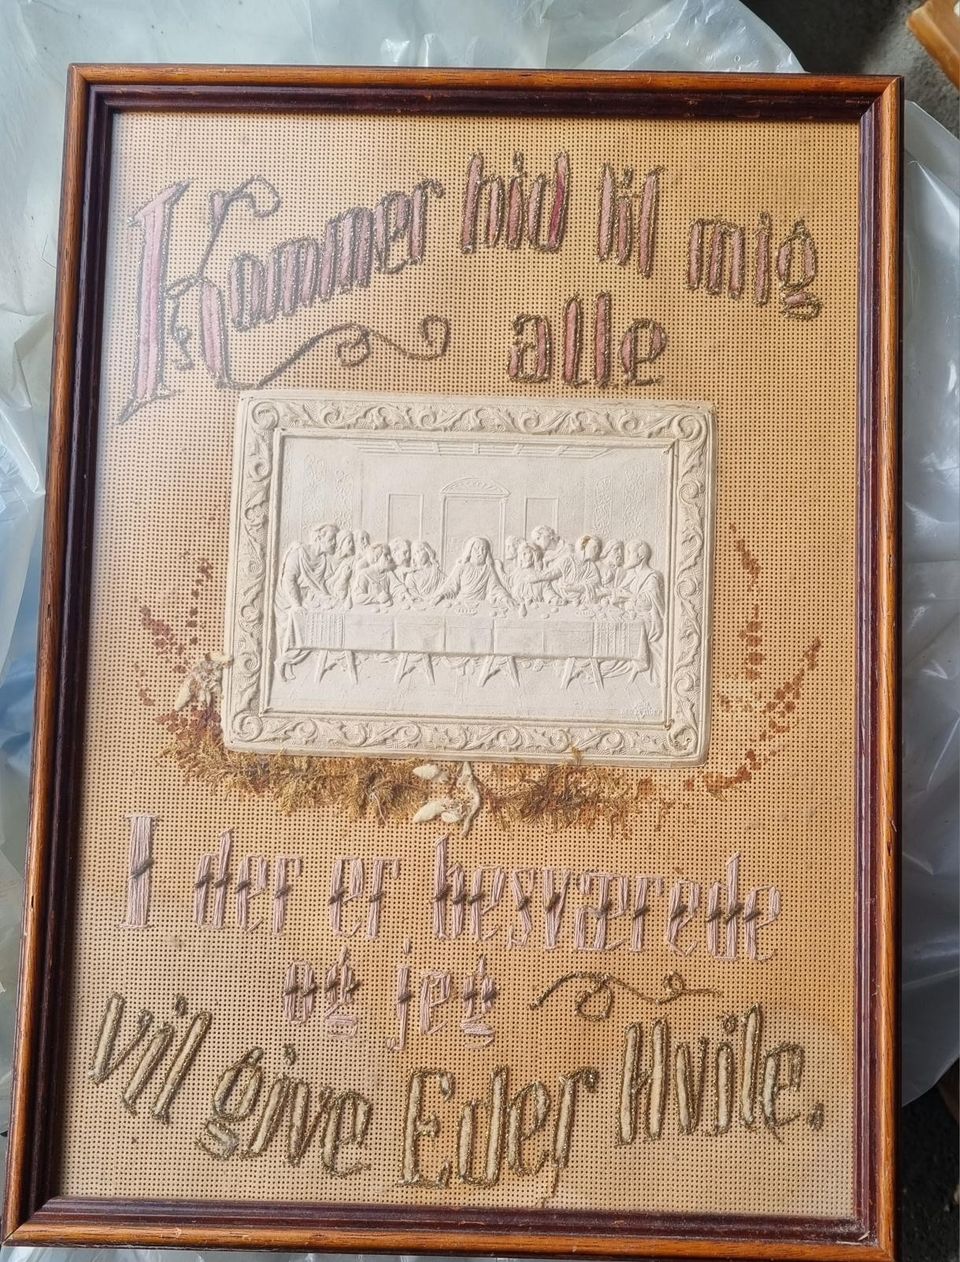 Kommer hid til mig
alle
I der er besværede
og jeg
vil give Eder Hvile.